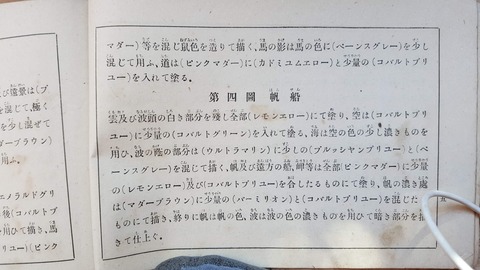 マダー)等を混じ鼠色を造りて描く、馬の影は馬の色に(ペーンスグレー)を少し
混じて用ふ、道は(ピンクマダー)に(カドミユムエロー)と少量の(コバルトブリ
ユー)を入れて塗る。
第四圖 帆船
雲及び波頭の白き部分を殘し全部(レモンエロー)にて塗り、空は(コバルトブリユ
ー)に少量の(コバルトグリーン)を入れて塗る、海は空の色の少し濃きものを
用ひ、波の蔭の部分は(ウルトラマリン)に少しの(プルッシヤンブリユー)と(ペ
ーンスグレー)を混じて描く、帆及び遠方の船、岬等は全部(ピンクマダー)に少量
の(レモンエロー)及び(コバルトブリユー)を合したるものにて塗り、帆の濃き處
は(マダーブラウン)に少量の(バーミリオン)と(コバルトブリユー)を混じた
ものにて描き、終りに帆は帆の色、波は波の色の濃きものを用ひて暗き部分を描
きて仕上ぐ。
及び遠景は(ブ
を混じて、極く
を少し混ぜて
マダーブラウン)
用ふ。
エメラルドグリ
後(コバルトブ
を以て描き、馬
リユー)(ピンク